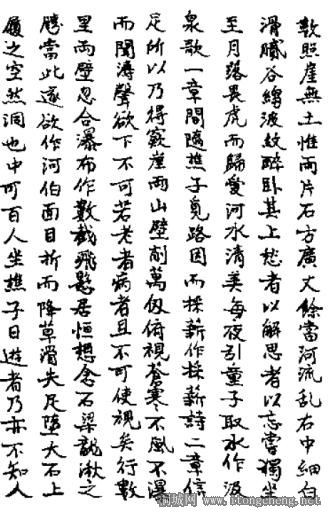 敷照崖無土惟兩片石方廣丈餘當河流亂石中細白
滑膩谷縐波紋醉卧其上愁者以解思者以忘嘗獨坐
至月落畏虎而歸愛河水清美每夜引童子取水作汲
泉歌一章間隨樵子覓路因而採薪作採薪詩二章信
足所以乃得竅崖兩山壁削萬仞俯視蒼寒不風不瀑
而聞濤聲欲下不可若老者病者且不可使視矣行數
里兩壁忽合瀑布作數截飛懸居恒想念石梁龍湫之
勝當此遂欲作河伯面目折而降草滑失足墮大石上
履之空然洞也中可百人坐樵子曰遊者乃亦不知人